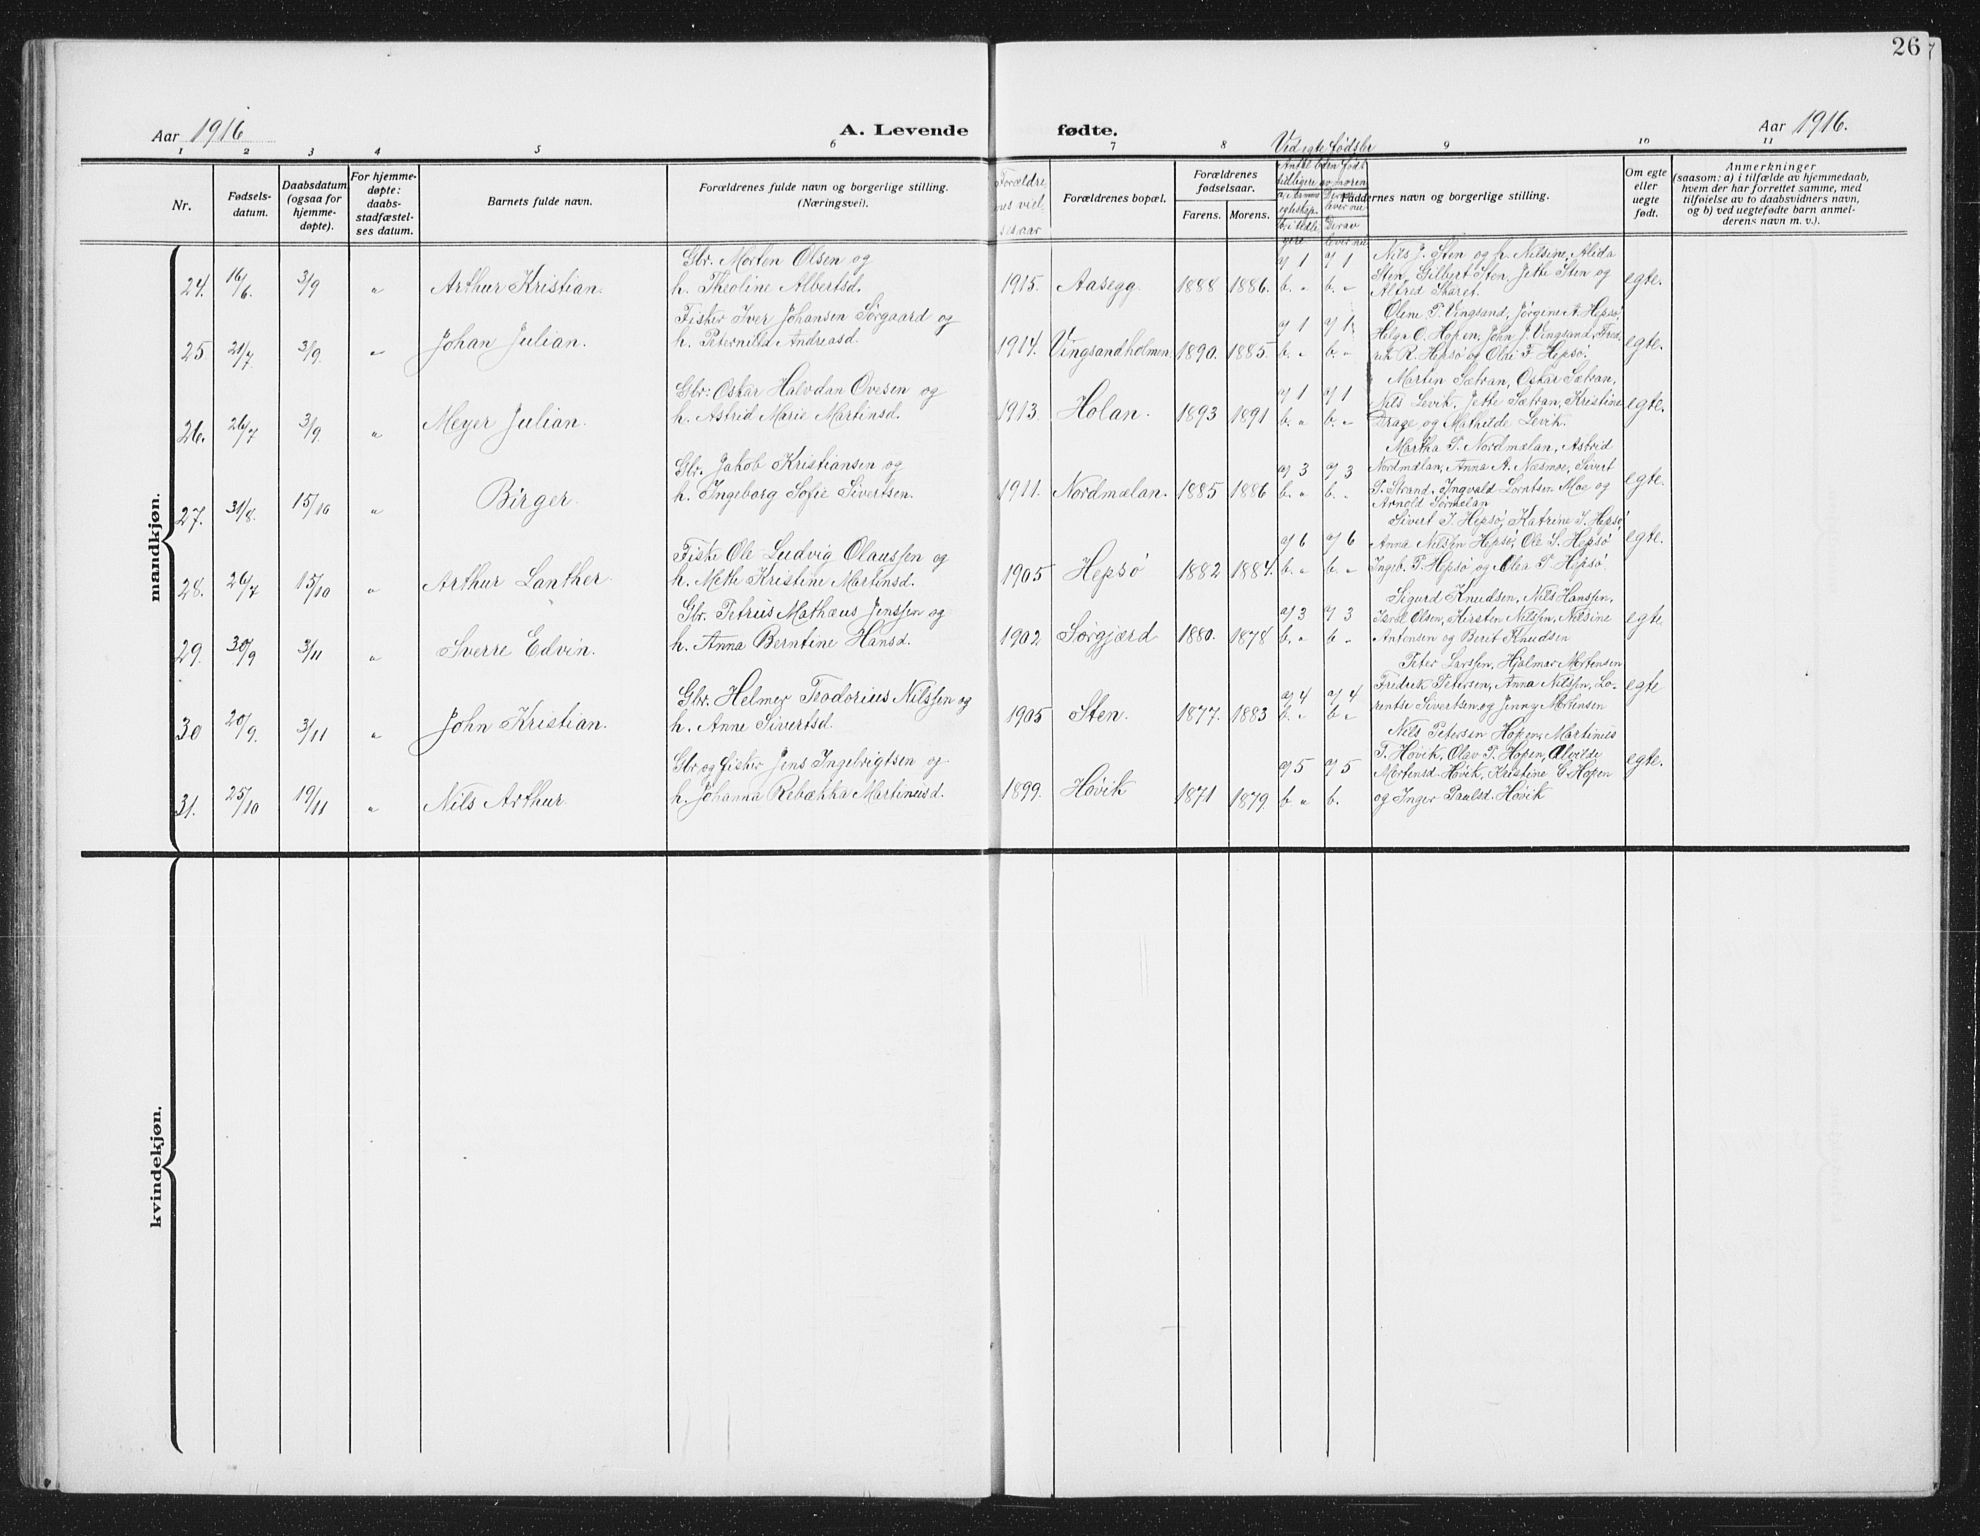 26
Aar 1916
A. Levende fødte.
Aar 1916.
1 2 3 4 5 6 7 8 9 10 11
Ved egte fødsler
Nr.
Fødsels-
datum.
Daabsdatum
(ogsaa for
hjemme-
døpte).
For hjemme-
døpte:
daabs-
stadfæstel-
ses datum.
Barnets fulde navn.
Forældrenes fulde navn og borgerlige stilling.
(Næringsvei).
Forældre
nes viel-
sesaar
Forældrenes bopæl.
Forældrenes
fødselsaar.
Farens. Morens.
Faddernes navn og borgerlige stilling.
Om egte
eller
uegte
født.
Anmerkninger
(saasom: a) i tilfælde av hjemmedaab,
hvem der har forrettet samme, med
tilføielse av to daabsvidners navn,
og b) ved uegtefødte barn anmel-
derens navn m. v.).
mandkjøn.
Gbr. Morten Olsen og
Nils J. Sten og h. Nilsine, Alida
24. 16/6 3/9 " Arthur Kristian. h. Theoline Albertsd. 1915. Aasegg. 1888 1886. a) 1 b. " a) 1 b. " Sten, Gilbert Sten, Jette Sten og egte.
Alfred Staret.
Fisker Iver Johansen Sørgaard og
Oline P. Vingsand, Jørgine A. Hepsø
25 21/7 3/9. " Johan Julian. h. Peternild Andreasd. 1914. Vingsandholmen 1890. 1885. a) 1 b. " a) 1 b. " Helge O. Hopen, John J. Vingsand, Fred- egte.
rik R. Hepsø og Oldi F. Hepsø.
Gbr: Oskar Halvdan Ovesen og
Martin Sætran, Oskar Sætran,
26. 26/7 3/9 " Meyer Julian. h. Astrid Marie Martinsd. 1913. Holan. 1893 1891 a) 1 b. " a) 1 b. " Nils Levik, Jette Sætran, Kristine egte.
Drage og Mathilde Levik.
Gbr. Jakob Kristiansen og
Martha P. Nordmælan, Astrid
27. 31/8. 15/10 " Birger. h. Ingeborg Sofie Sivertsen. 1911. Nordmælan. 1885 1886 a) 3 b. " a) 3 b. " Nordmælan, Anna A. Næsmoe, Sivert egte.
P. Strand, Ingvald Lorntsen Moe og
Arnold Sørmelan
Fisker Ole Ludvig Olaussen og
Sivert J. Hepsø, Katrine J. Hepsø
28. 26/7 15/10 " Arthur Lanther. h. Meth Kristine Martinsd. 1905 Hepsø 1882 1884. a) 6 b. " a) 6 b. " Anna Nilssen Hepsø, Ole S. Hepsø egte.
Ingeb. P. Hepsø og Olea P. Hepsø
Gbr. Petrus Mathæus Jenssen og
Sigurd Knudsen, Nils Hanssen,
29. 30/9 3/11 " Sverre Edvin. h. Anna Berntine Hansd. 1902 Sørgjærd 1880. 1878 a) 3 b. " a) 3 b " Isral Olsen, Kirsten Nilssen, Nilsine egte
Antonsen og Berit Knudsen
Gbr. Helmer Teodorius Nilssen og
Peter Larssen, Hjalmar Mortensen
30 20/9. 3/11 " John Kristian. h. Anne Sivertsd. 1905 Sten. 1877. 1883 a) 4 b. " a) 4 b " Fredrik Petersen, Anna Nilssen, Lo- egte
rentse Sivertsen og Jenny Mortensen
Gbr og fisker Jens Ingebrigtsen og
Nils Petersen Hopen, Martinus
31. 25/10 19/11 " Nils Arthur. h. Johanna Rebækka Martinusd. 1899. Høvik 1871 1879. a) 5 b " a) 5 b. P. Høvik, Olav P. Hopen, Alvilde egte.
Mortensd. Høvik, Kristine G. Hopen
og Inger Paulsd. Høvik
kvindekjøn.